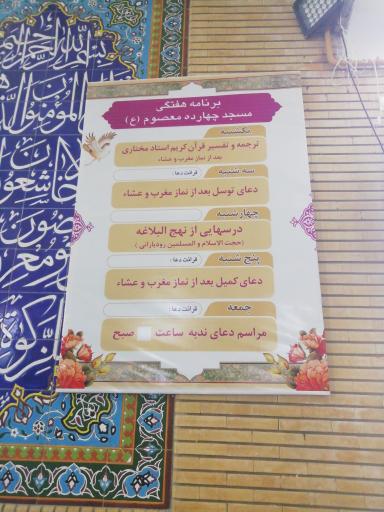 بسم الله الرحمن الرحیم
المؤمنون
خاشعون
برنامه هفتگی
مسجد چهارده معصوم (ع)
یکشنبه
ترجمه و تفسیر قرآن کریم استاد مختاری
بعد از نماز مغرب و عشاء
سه شنبه
قرائت دعا :
دعای توسل بعد از نماز مغرب و عشاء
چهارشنبه
درسهایی از نهج البلاغه
(حجت الاسلام و المسلمین رودبارانی )
پنج شنبه
قرائت دعا :
دعای کمیل بعد از نماز مغرب و عشاء
جمعه
قرائت دعا :
مراسم دعای ندبه ساعت صبح